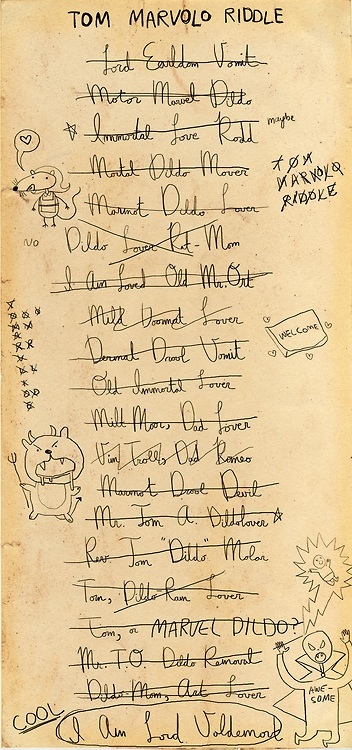 TOM MARVOLO RIDDLE
Lord Earldom Vomit
Motor Marvel Dildo
Immortal Love Rodd
maybe
Mortal Dildo Mover
TOM
MARVOLO
RIDDLE
Marmot Dildo Lover
NO
Dildo Lover Rot-Mom
I Am Loved Old Mr.Ort
Mild Doormat Lover
WELCOME
Dermal Drool Vomit
Old Immortal Lover
Milt Moor, Dad Lover
Vim Trolls Dad Romeo
Marmot Drool Devil
Mr. Tom A. Dildolover
Rev. Tom "Dildo" Molar
Tom, Dildo Ram Lover
Tom, or MARVEL DILDO?
Mr. T.O. Dildo Removal
AWE-
SOME
Dildo Mom, Art Lover
COOL
I Am Lord Voldemort